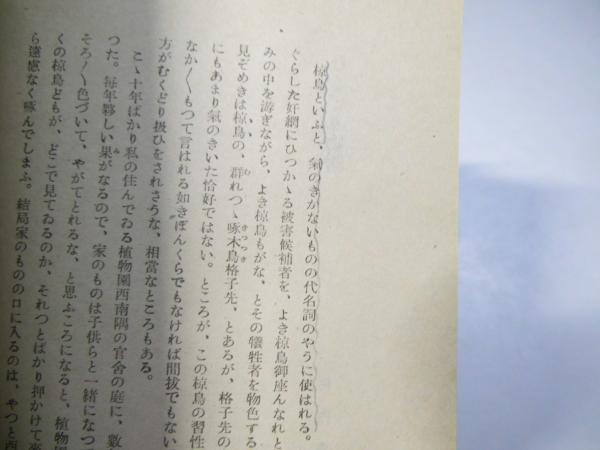 椋鳥といふと、氣のきかないものの代名詞のやうに使はれる。
ぐらした奸網にひつかゝる被害候補者を、よき椋鳥御座んなれと
みの中を游ぎながら、よき椋鳥もがな、とその犠牲者を物色する
見ぞめきは椋鳥の、群れつゝ啄木鳥格子先、とあるが、格子先の
にもあまり氣のきいた恰好ではない。ところが、この椋鳥の習性
なか〳〵もつて言はれる如きぼんくらでもなければ間拔でもない
方がむくどり扱ひをされさうな、相當なところもある。
こゝ十年ばかり私の住んでゐる植物園西南隅の官舎の庭に、數
つた。毎年夥しい果がなるので、家のものは子供らと一緒になつ
そろ〳〵色づいて、やがてとれるな、と思ふころになると、植物
くの椋鳥どもが、どこで見てゐるのか、それつとばかり押かけて
ら遠慮なく啄んでしまふ。結局家のものの口に入るのは、やつと